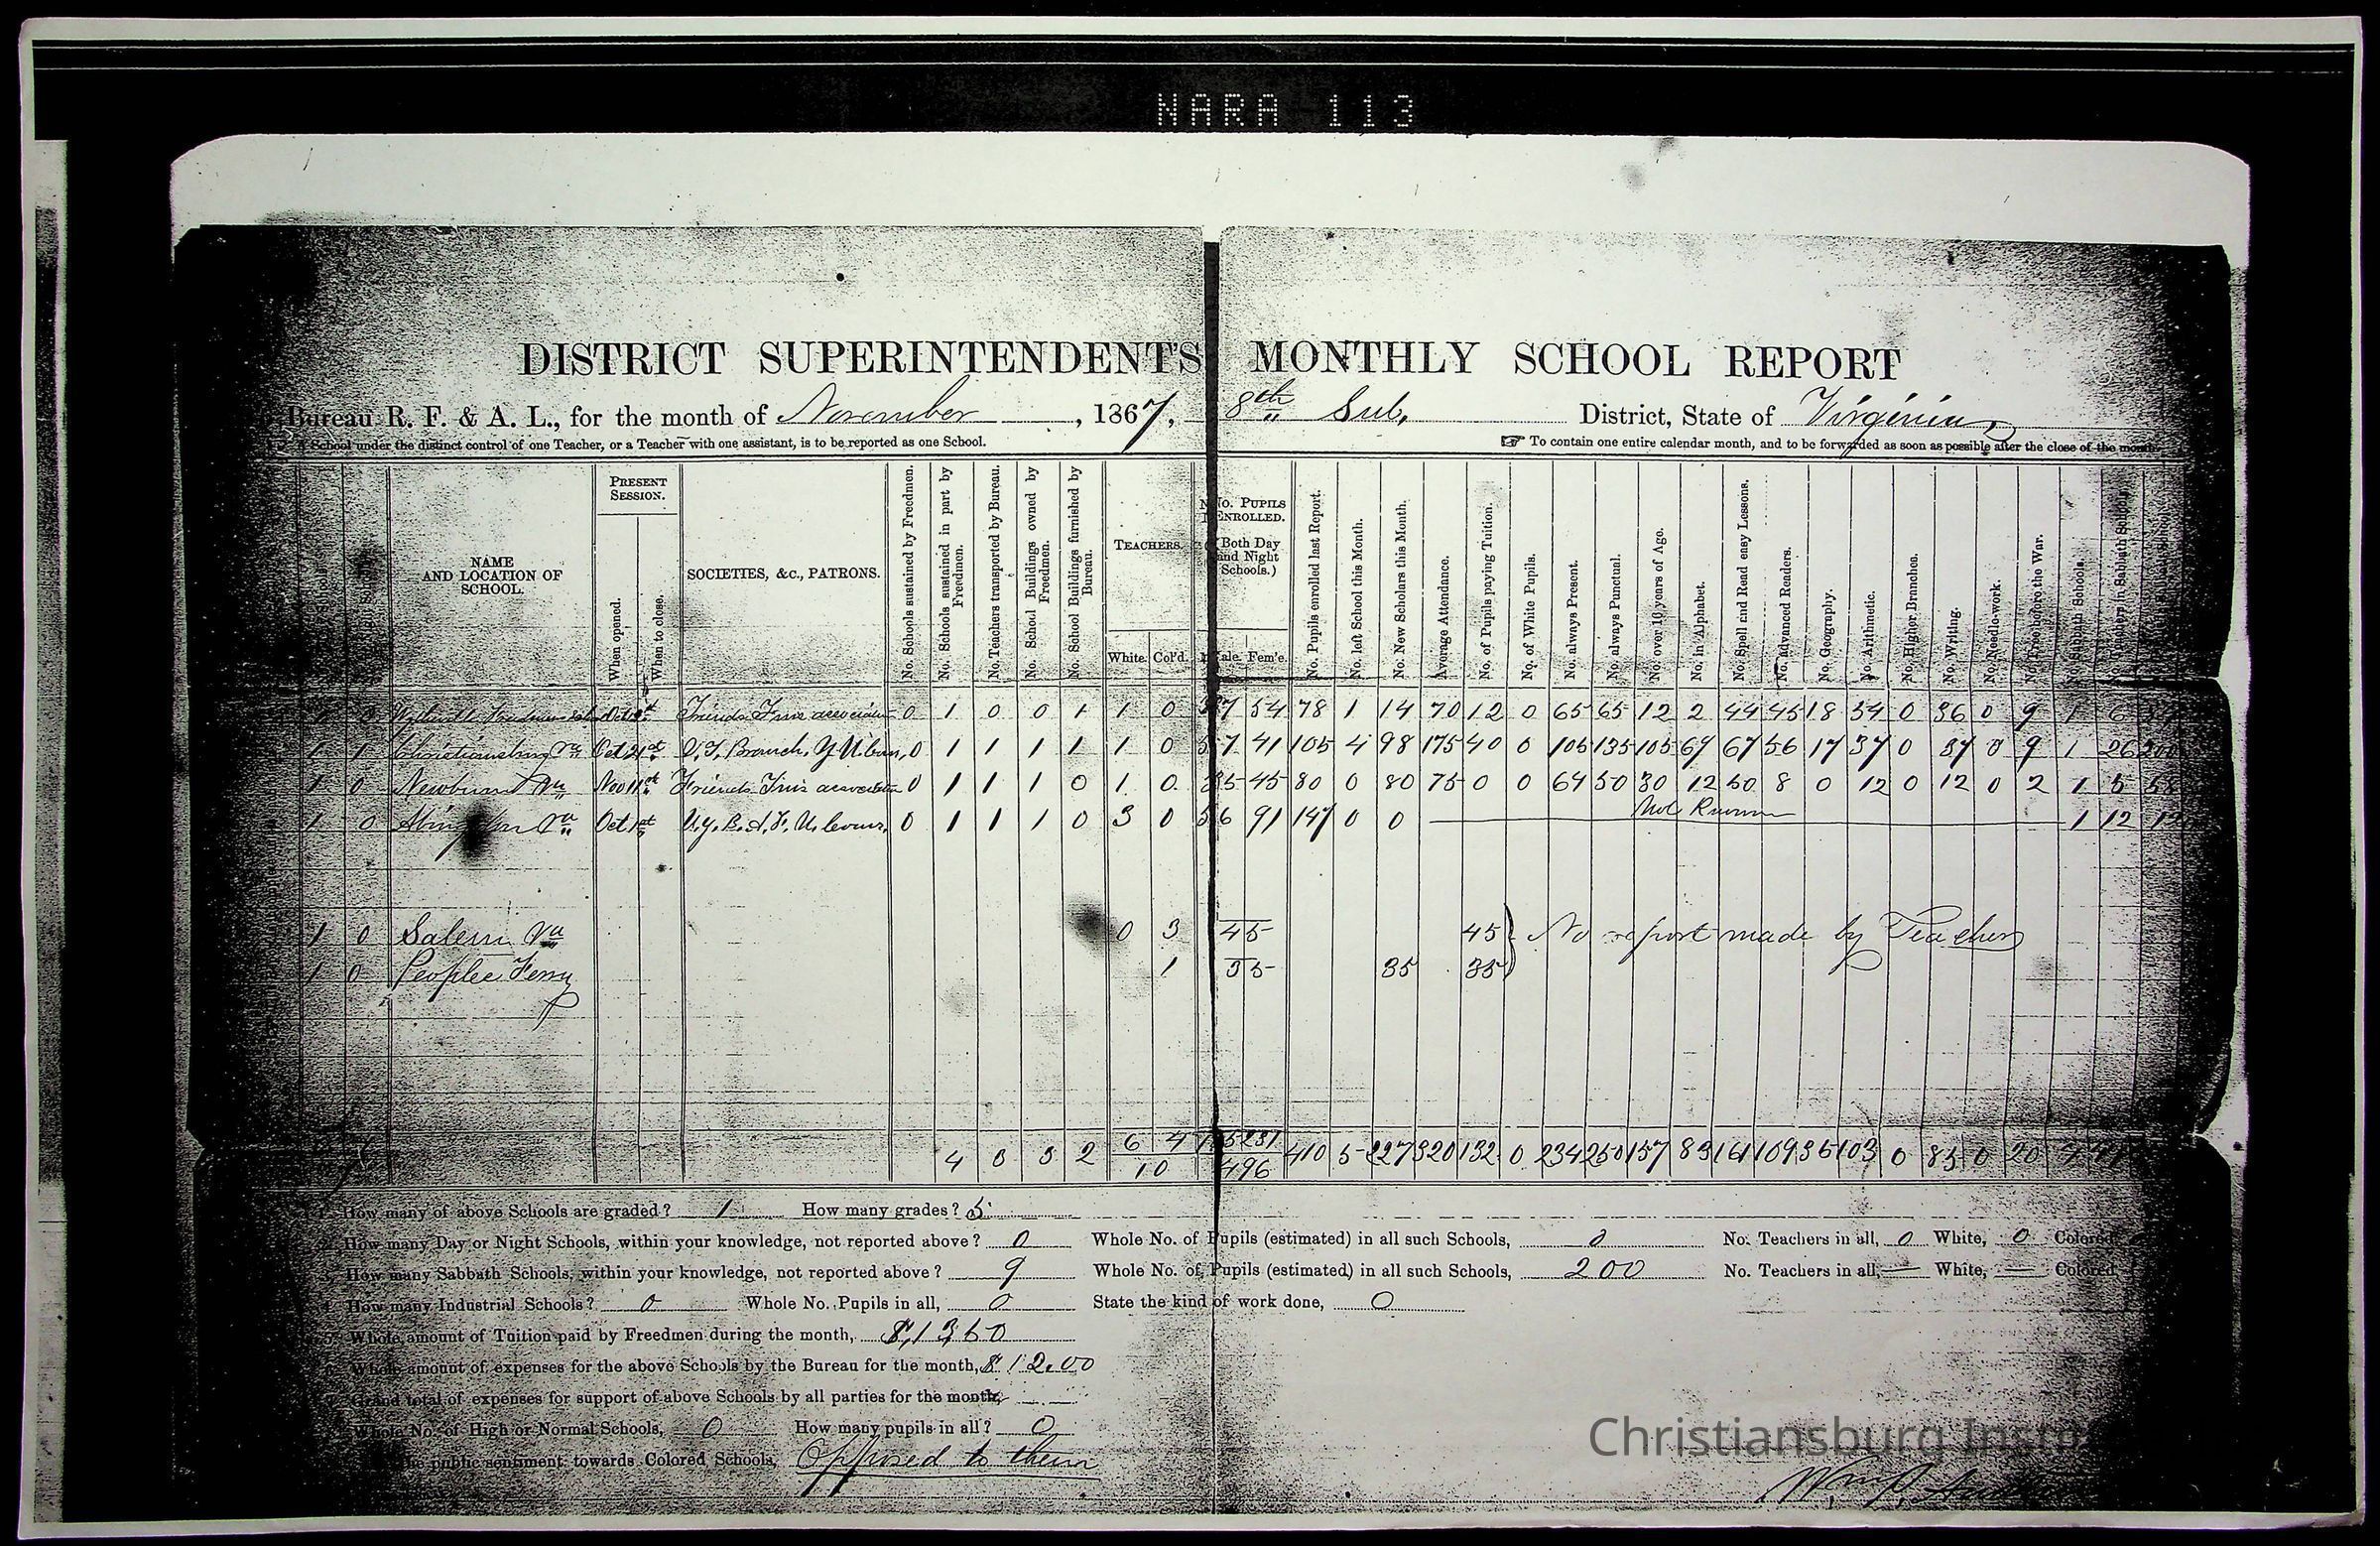 NARA 113
DISTRICT SUPERINTENDENT'S MONTHLY SCHOOL REPORT
Bureau R. F. & A. L., for the month of November, 1867, 8th Sub, District, State of Virginia
A School under the distinct control of one Teacher, or a Teacher with one assistant, is to be reported as one School.
☞ To contain one entire calendar month, and to be forwarded as soon as possible after the close of the month.
NAME AND LOCATION OF SCHOOL.
PRESENT SESSION.
When opened.
When to close.
SOCIETIES, &c., PATRONS.
No. Schools sustained by Freedmen.
No. Schools sustained in part by Freedmen.
No. Teachers transported by Bureau.
No. School Buildings owned by Freedmen.
No. School Buildings furnished by Bureau.
TEACHERS.
White. Col'd.
No. PUPILS ENROLLED.
(Both Day and Night Schools.)
Male. Fem'e.
No. Pupils enrolled last Report.
No. left School this Month.
No. New Scholars this Month.
Average Attendance.
No. of Pupils paying Tuition.
No. of White Pupils.
No. always Present.
No. always Punctual.
No. over 16 years of Age.
No. in Alphabet.
No. Spell and Read easy Lessons.
No. Advanced Readers.
No. Geography.
No. Arithmetic.
No. Higher Branches.
No. Writing.
No. Needle-work.
No. Free before the War.
No. Sabbath Schools.
No. Teachers in Sabbath Schools.
0 1 0 0 1 1 0 37 54 78 1 14 70 12 0 65 65 12 2 44 45 18 54 0 36 0 9 1 6
1 1 Christiansburg Va Oct 21st 0 1 1 1 1 1 0 57 41 105 4 98 175 40 0 105 135 105 69 67 56 17 37 0 37 0 9 1 26 200
1 0 Newbern Va Nov 11th Friends 0 1 1 1 0 1 0 35 45 80 0 80 75 0 0 64 50 30 12 50 8 0 12 0 12 0 2 1 5 58
1 0 Abingdon Va Oct 1st 0 1 1 1 0 3 0 56 91 147 0 0 1 12
1 0 Salem Va 0 3 45 45 No report made by Teachers
1 0 1 35 35 35
4 3 3 2 6 4 10 496 410 5 227 320 132 0 234 250 157 83 161 109 35 103 0 85 0 20 4
How many of above Schools are graded? 1 How many grades? 5
How many Day or Night Schools, within your knowledge, not reported above? 0 Whole No. of Pupils (estimated) in all such Schools, 0 No. Teachers in all, 0 White, 0 Colored
How many Sabbath Schools, within your knowledge, not reported above? 9 Whole No. of Pupils (estimated) in all such Schools, 200 No. Teachers in all, White, Colored
How many Industrial Schools? 0 Whole No. Pupils in all, 0 State the kind of work done, 0
Whole amount of Tuition paid by Freedmen during the month,
Whole amount of expenses for the above Schools by the Bureau for the month, $12.00
Grand total of expenses for support of above Schools by all parties for the month,
Whole No. of High or Normal Schools, 0 How many pupils in all? 0
the public sentiment towards Colored Schools, Opposed to them
Christiansburg Institute